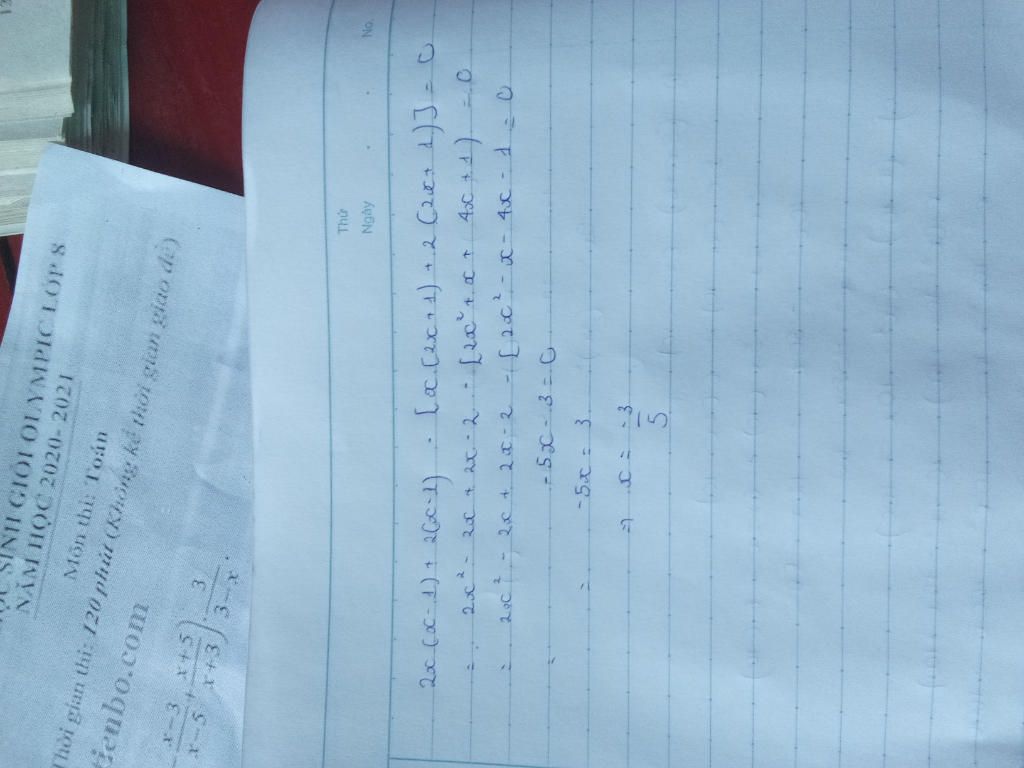 SINH GIỎI OLYMPIC LỚP 8
NĂM HỌC 2020- 2021
Môn thi: Toán
Thời gian thi: 120 phút (Không kể thời gian giao đề)
tienbo.com
x−3/x−5 + x+5/x+3) · 3/3−x
Thứ
Ngày
No.
2x(x-1)+ 2(x-1) - [x(2x+1)+2(2x+1)] = 0
= 2x² - 2x + 2x - 2 - [2x²+x+ 4x+1) = 0
= 2x² - 2x + 2x - 2 - [2x² - x - 4x - 1 = 0
= -5x - 3 = 0
= -5x = 3
→ x = -3/5